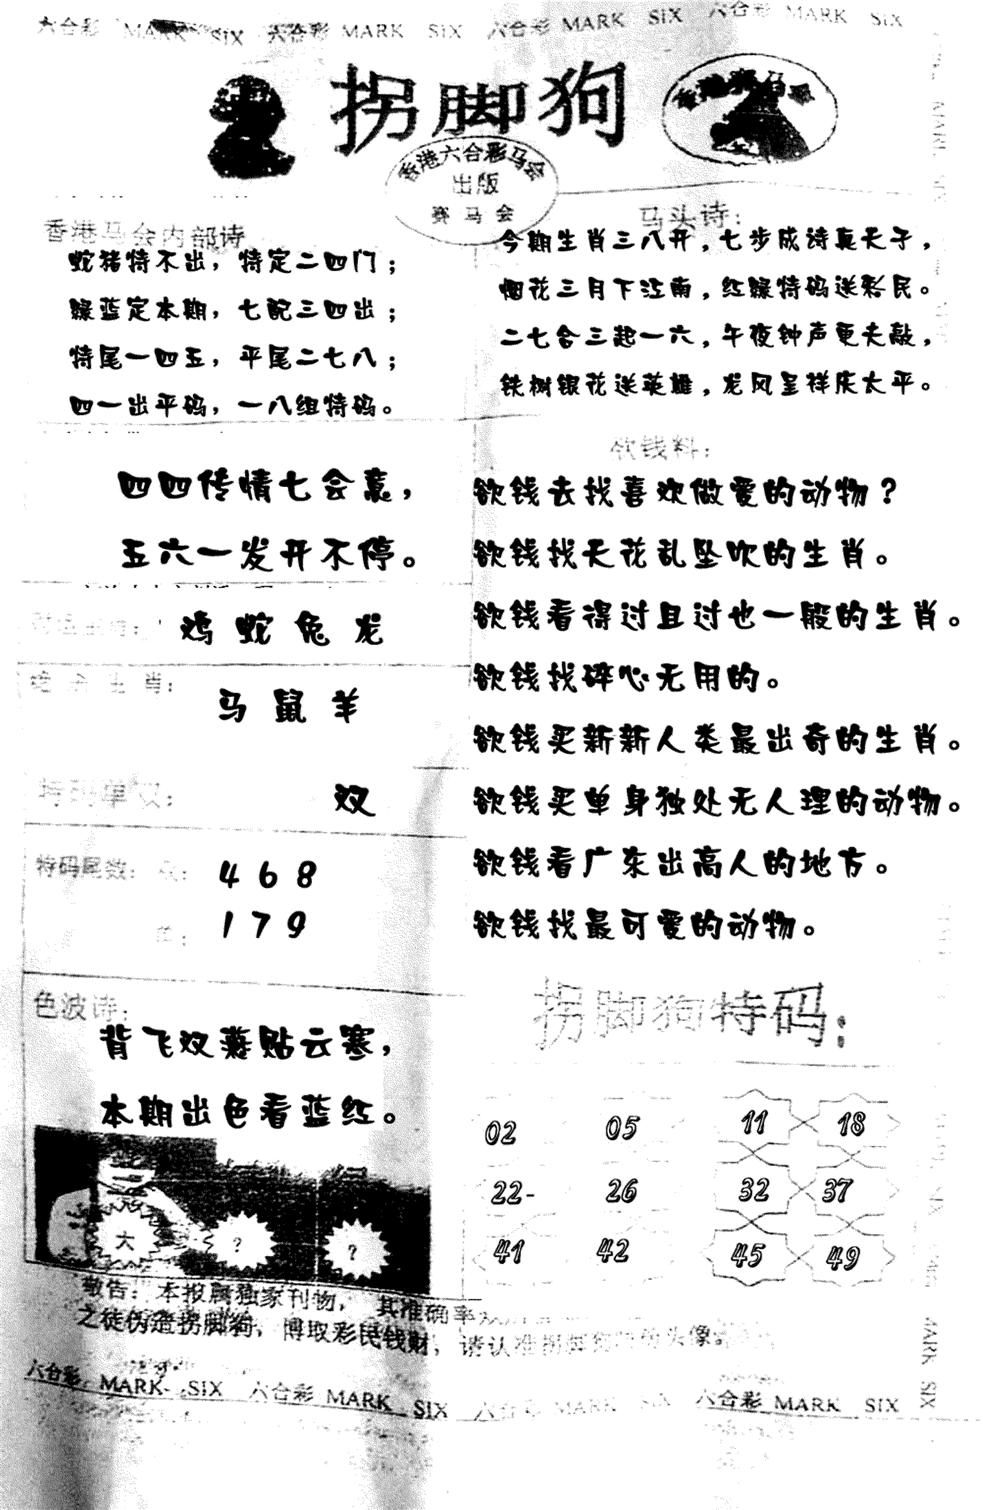 六合彩 MARK SIX 六合彩 MARK SIX 六合彩 MARK SIX 六合彩 MARK SIX
拐脚狗
香港赛马会
香港六合彩马会
出版
赛马会
香港马会内部诗
蛇猪特不出，特定二四门；
绿蓝定本期，七配三四出；
特尾一四五，平尾二七八；
四一出平码，一八组特码。
马头诗：
今期生肖三八开，七步成诗真天子，
烟花三月下江南，红绿特码送彩民。
二七合三起一六，午夜钟声更夫敲，
铁树银花送英雄，龙凤呈祥庆太平。
四四传情七会意，
五六一发开不停。
鸡 蛇 兔 龙
绝杀生肖：
马 鼠 羊
特码单双：
双
特码尾数：双：
4 6 8
单：
1 7 9
色波诗：
背飞双燕贴云寒，
本期出色看蓝红。
大
?
?
欲钱料：
欲钱去找喜欢做爱的动物？
欲钱找天花乱坠吹的生肖。
欲钱看得过且过也一般的生肖。
欲钱找碎心无用的。
欲钱买新新人类最出奇的生肖。
欲钱买单身独处无人理的动物。
欲钱看广东出高人的地方。
欲钱找最可爱的动物。
拐脚狗特码：
02 05 11 18
22- 26 32 37
41 42 45 49
敬告：本报属独家刊物，其准确率
之徒伪造拐脚狗，博取彩民钱财，请认准拐脚狗头像。
六合彩 MARK SIX 六合彩 MARK SIX 六合彩 MARK SIX 六合彩 MARK SIX
MARK SIX